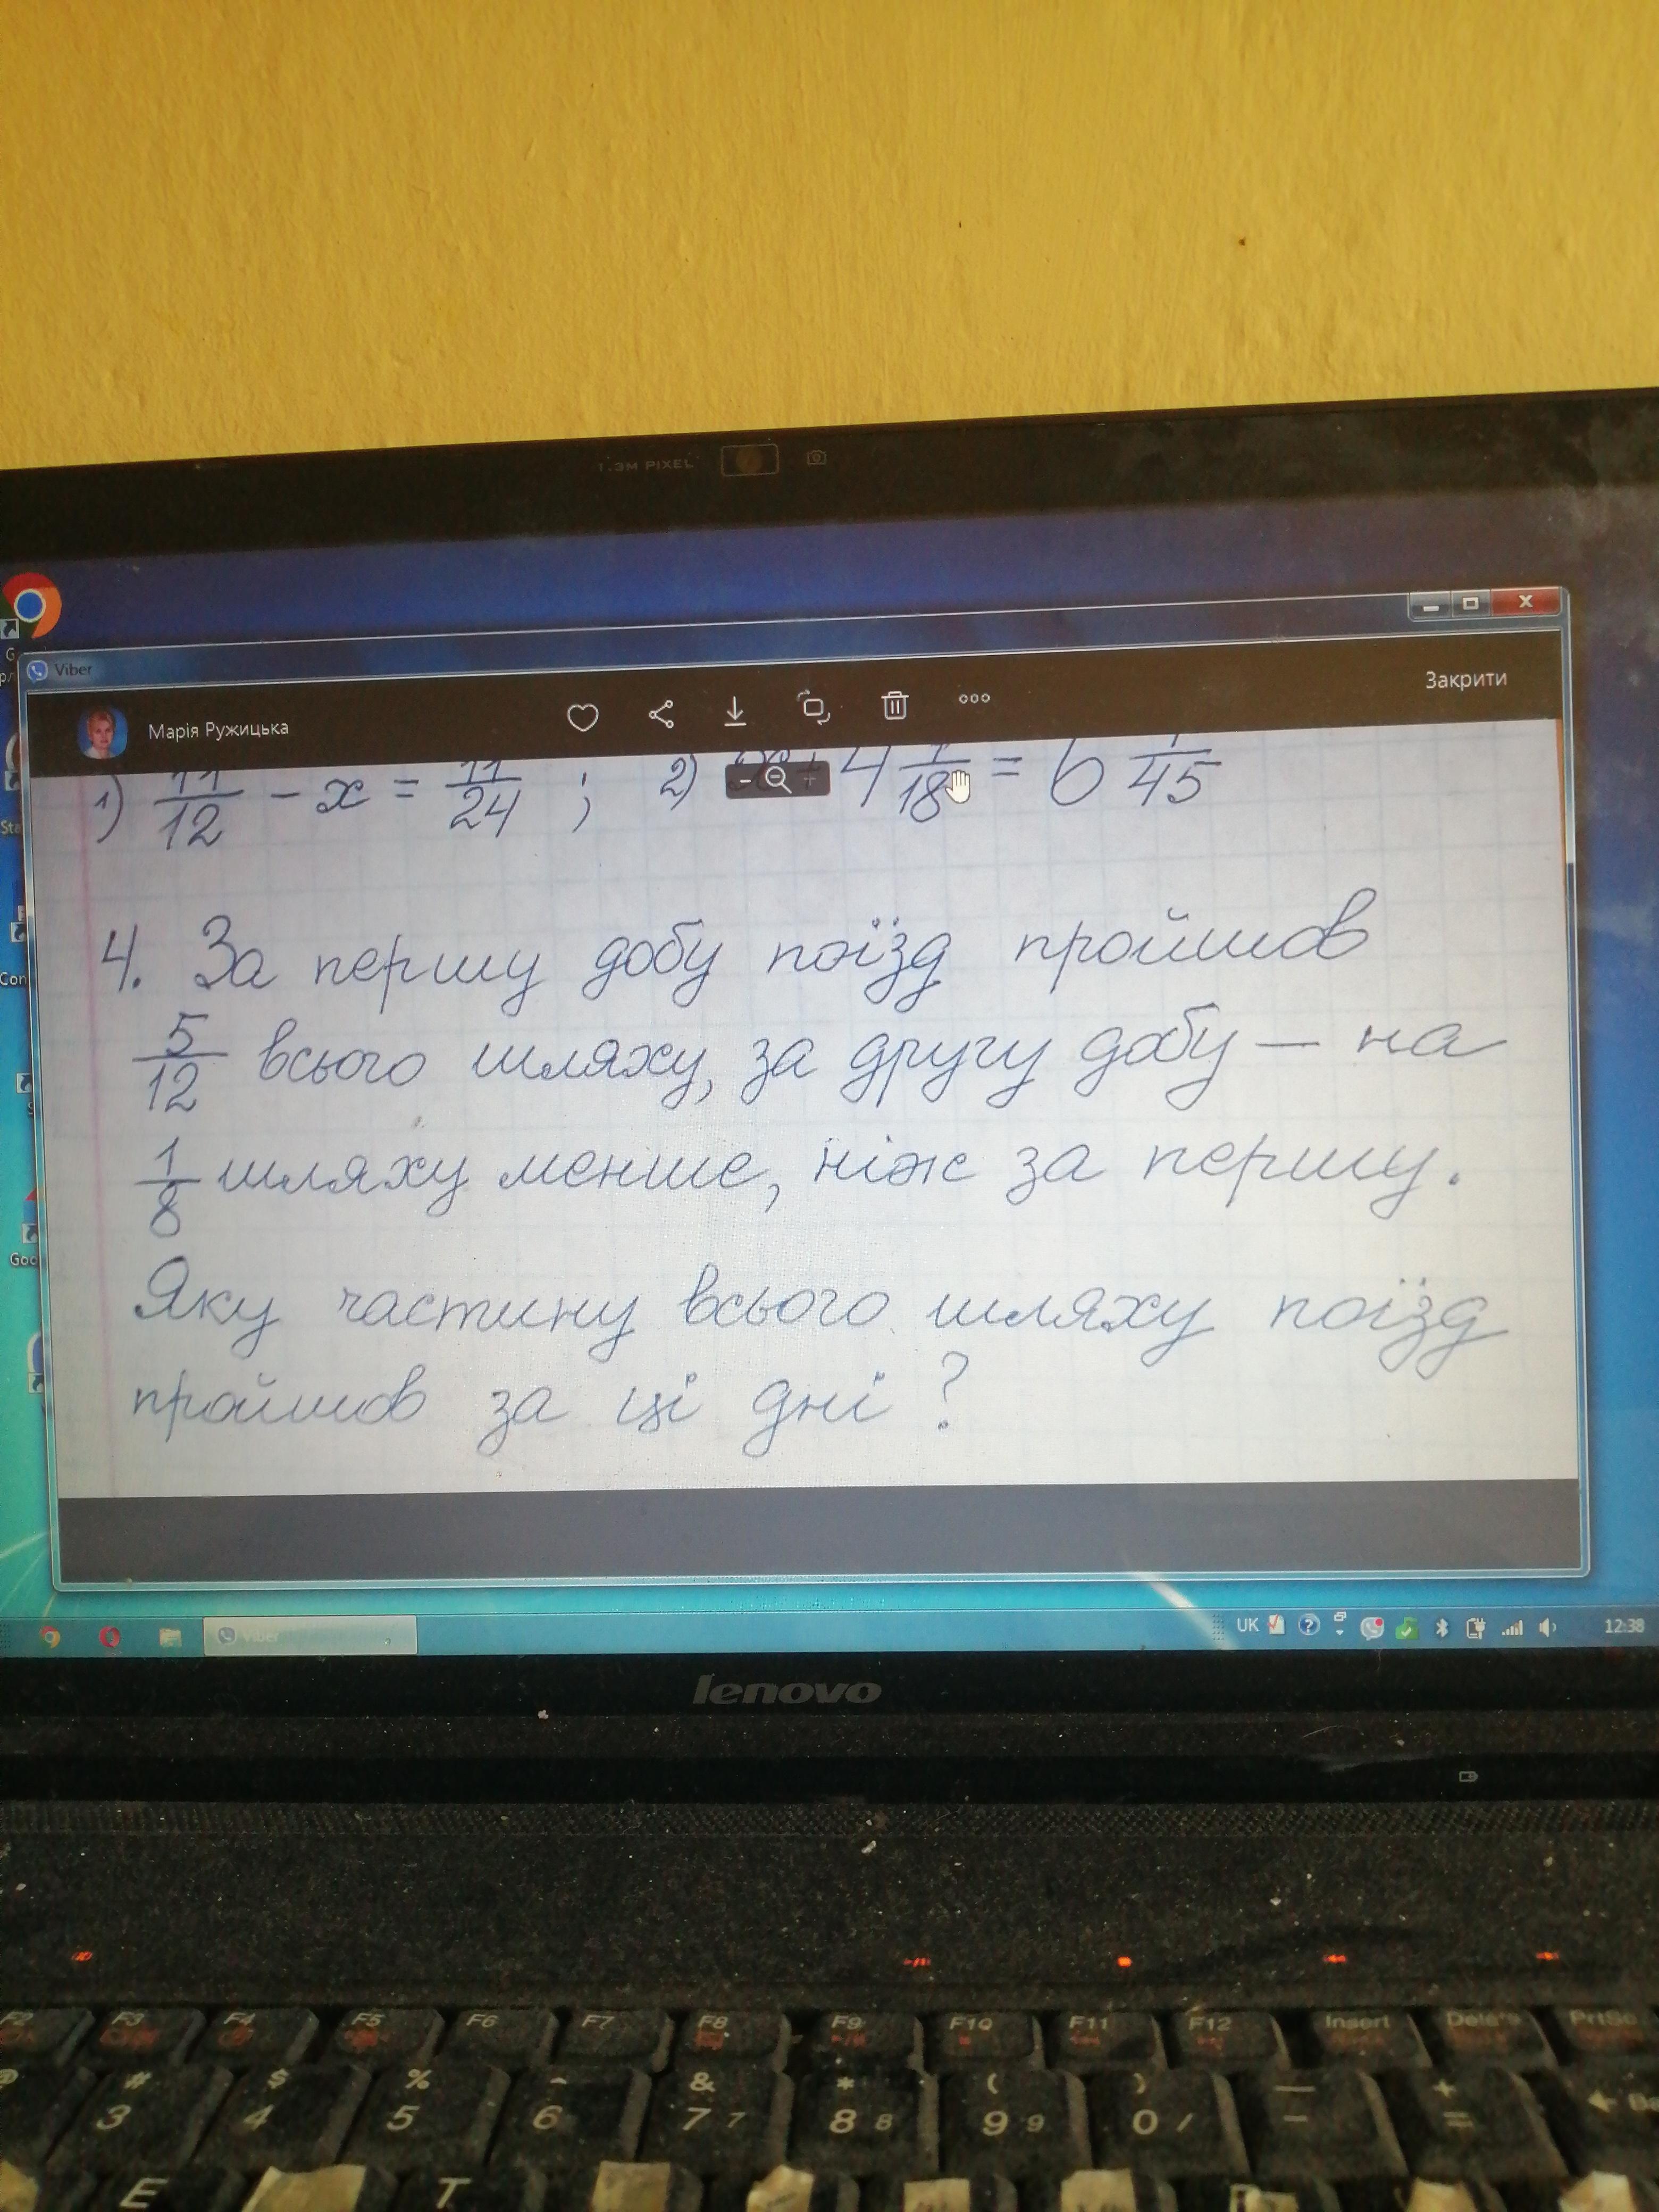 1.3M PIXEL
Viber
Закрити
Марія Ружицька
1) 11/12 - x = 11/24 ; 2) 4 /18 = 6 /45
4. За першу добу поїзд пройшов
5/12 всього шляху, за другу добу – на
1/8 шляху менше, ніж за першу.
Яку частину всього шляху поїзд
пройшов за ці дні?
Viber
UK
12:38
lenovo
F2 F3 F4 F5 F6 F7 F8 F9 F10 F11 F12 Insert Delete PrtSc
# $ % & * ( ) — +
3 4 5 6 7 7 8 8 9 9 0 / - =
E T